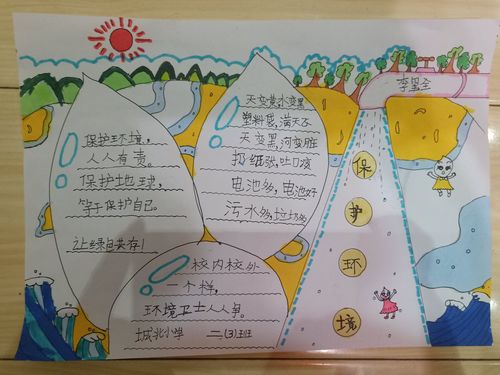 保护环境，
人人有责。
保护地球，
等于保护自己。
让绿色共存！
天变黄水变黑
塑料袋，满天飞
天变黑，河变脏
扔纸张，吐口痰
电池多，电池坏
污水多，垃圾多
校内校外
一个样，
环境卫士人人争。
城北小学 二、(3)班
保
护
环
境